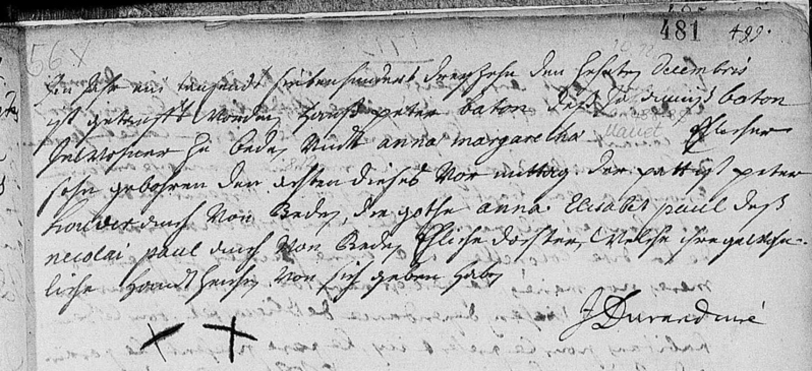 481 499.
56 X
Im Jahr ein tausendt siebenhundert dreyzehn den decembris
ist getaufft worden hanß peter baton deß baton
inwohner zu beden undt anna margaretha Manet Ehlicher
sohn gebohren den ersten dieses vor mittag. der patt ist peter
auch von Beden, die gothe anna Elisabet paul deß
necolai paul auch von Beden Ehliche dochter, welche ihre gewohn-
liche handtzeichen von sich geben haben
J Durand curé